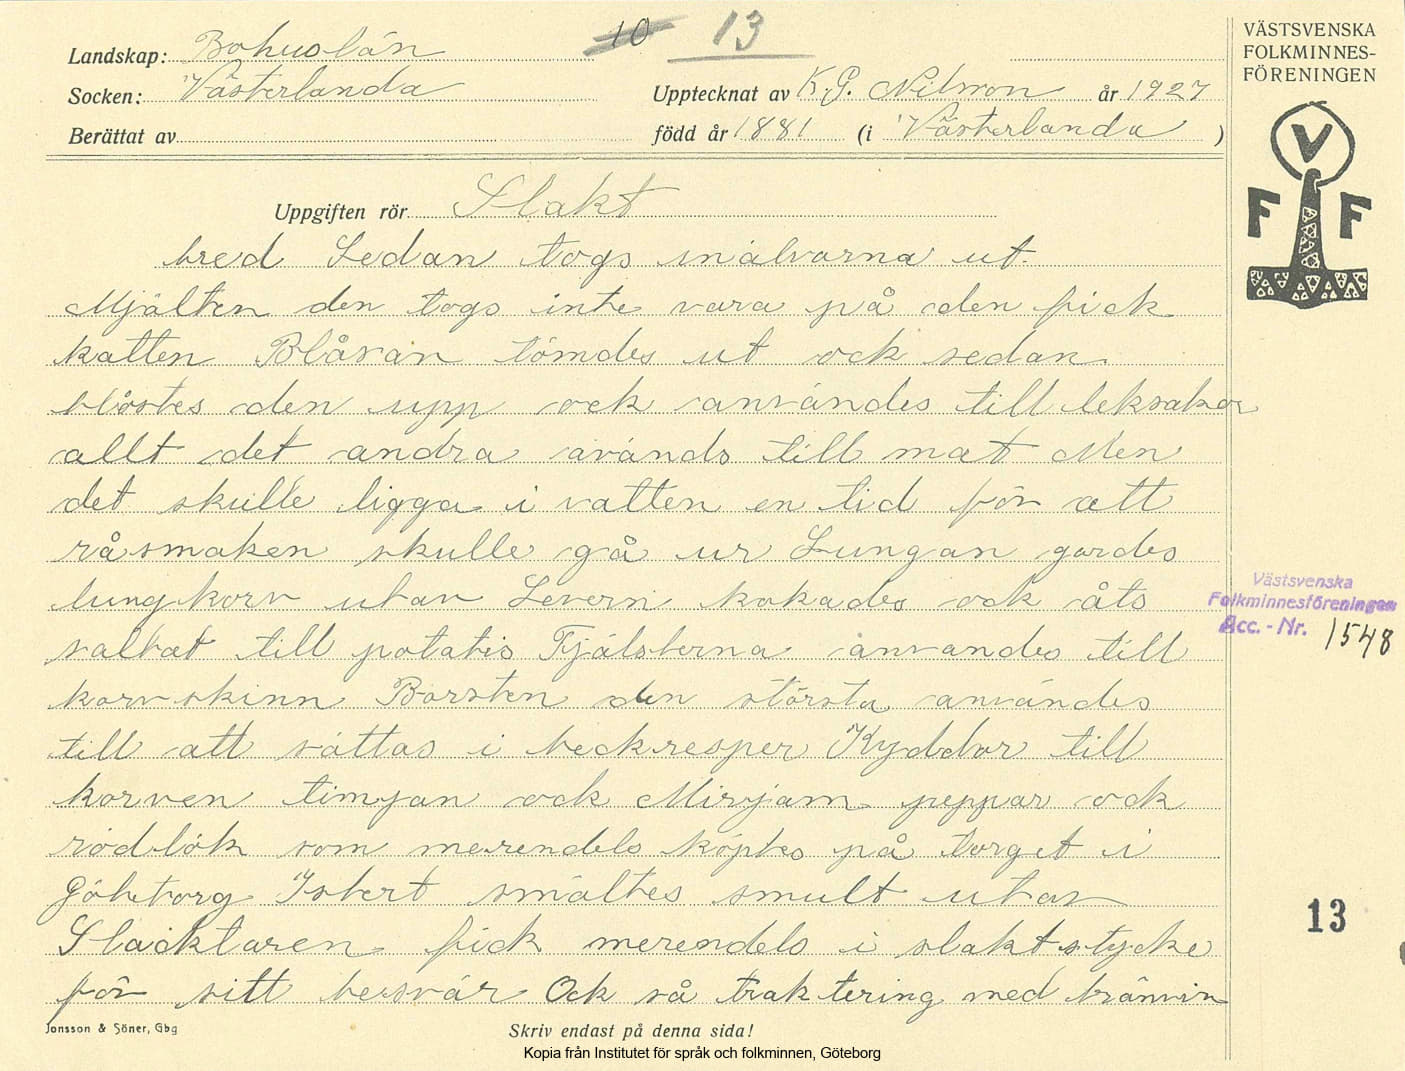 Landskap: Bohuslän
Socken: Västerlanda
Berättat av
10 13
Upptecknat av K. G. Nilsson år 1927
född år 1881 (i Västerlanda )
VÄSTSVENSKA
FOLKMINNES-
FÖRENINGEN
V
F F
Uppgiften rör Slakt
bred Sedan togs inälvorna ut.
Mjälten den togs inte vara på den fick
katten Blåsan tömdes ut ock sedan
blåstes den upp ock användes till leksaker
allt det andra avänds till mat Men
det skulle ligga i vatten en tid för att
råsmaken skulle gå ur Lungan gordes
lungkorv utav Levern kokades ock åts
saltat till potatis Fjälsterna användes till
korvskinn Borsten den största användes
till att sättas i beckresper Kryddor till
korven timjan ock Mirjam peppar ock
rödlök som merendels köptes på torget i
Göteborg Istert smältes smult utav
Slacktaren fick merendels i slaktstycke
för sitt besvär Ock så traktering med bränvin
Västsvenska
Folkminnesföreningen
Acc. - Nr. 1548
13
Jonsson & Söner, Gbg
Skriv endast på denna sida!
Kopia från Institutet för språk och folkminnen, Göteborg